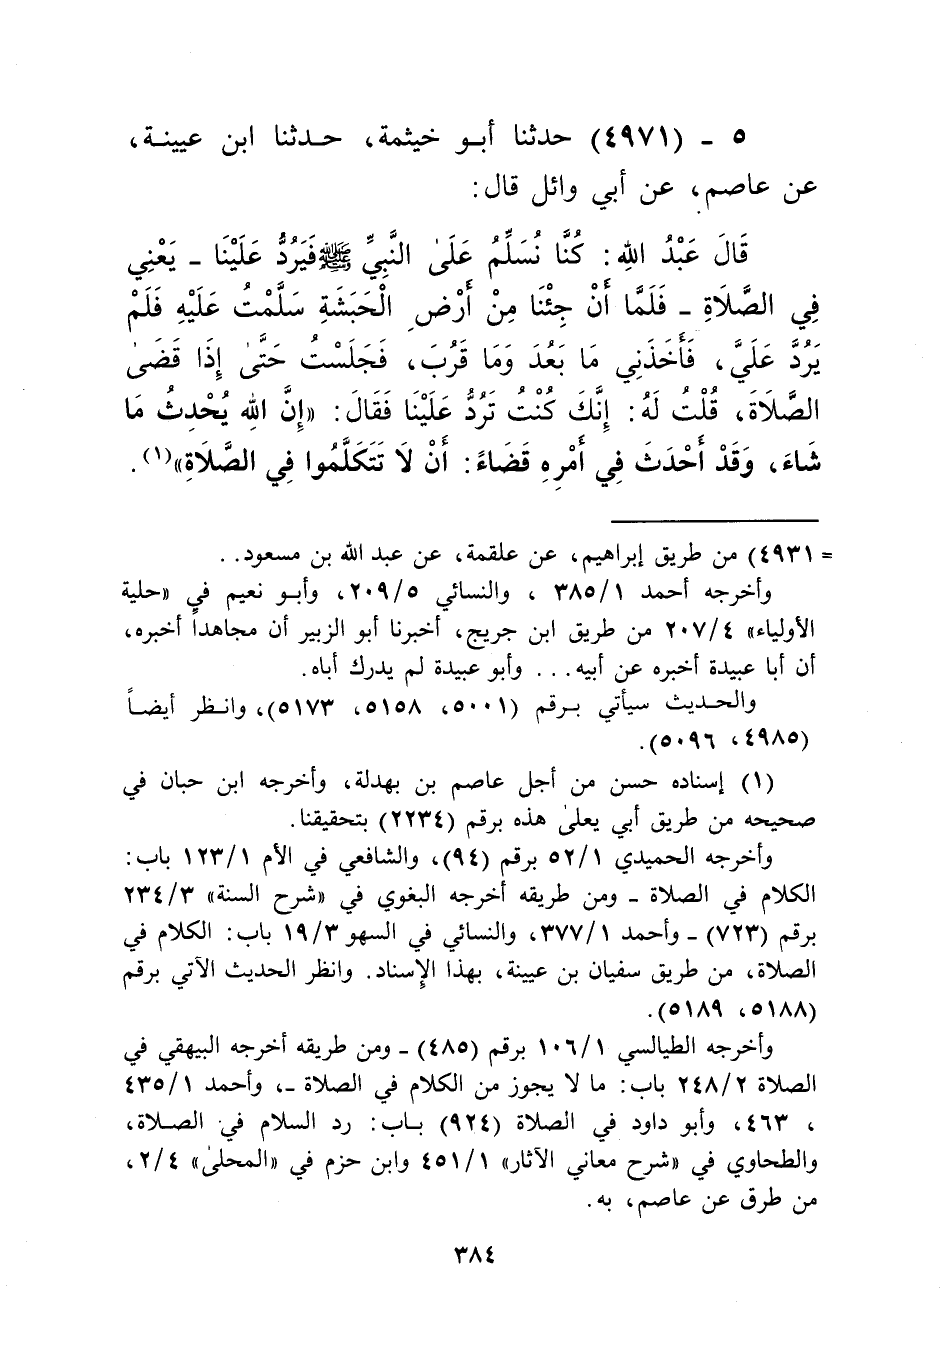 ٥ ـ (٤٩٧١) حدثنا أبـو خيثمة، حـدثنا ابن عيينـة،
عن عاصم، عن أبي وائل قال:
قَالَ عَبْدُ اللهِ: كُنَّا نُسَلِّمُ عَلَىٰ النَّبِيِّ ﷺ فَيَرُدُّ عَلَيْنَا ـ يَعْنِي
فِي الصَّلَاةِ ـ فَلَمَّا أَنْ جِئْنَا مِنْ أَرْضِ الْحَبَشَةِ سَلَّمْتُ عَلَيْهِ فَلَمْ
يَرُدَّ عَلَيَّ، فَأَخَذَنِي مَا بَعُدَ وَمَا قَرُبَ، فَجَلَسْتُ حَتَّىٰ إِذَا قَضَىٰ
الصَّلَاةَ، قُلْتُ لَهُ: إِنَّكَ كُنْتَ تَرُدُّ عَلَيْنَا فَقَالَ: «إِنَّ اللهَ يُحْدِثُ مَا
شَاءَ، وَقَدْ أَحْدَثَ فِي أَمْرِهِ قَضَاءً: أَنْ لَا تَتَكَلَّمُوا فِي الصَّلَاةِ»(١).
= ٤٩٣١) من طريق إبراهيم، عن علقمة، عن عبد الله بن مسعود. .
وأخرجه أحمد ٣٨٥/١ ، والنسائي ٢٠٩/٥، وأبـو نعيم في «حلية
الأولياء» ٢٠٧/٤ من طريق ابن جريج، أخبرنا أبو الزبير أن مجاهداً أخبره،
أن أبا عبيدة أخبره عن أبيه. . . وأبو عبيدة لم يدرك أباه.
والحـديث سيأتي بـرقم (٥٠٠١، ٥١٥٨، ٥١٧٣)، وانـظر أيضـاً
(٤٩٨٥، ٥٠٩٦).
(١) إسناده حسن من أجل عاصم بن بهدلة، وأخرجه ابن حبان في
صحيحه من طريق أبي يعلىٰ هذه برقم (٢٢٣٤) بتحقيقنا.
وأخرجه الحميدي ٥٢/١ برقم (٩٤)، والشافعي في الأم ١٢٣/١ باب:
الكلام في الصلاة ـ ومن طريقه أخرجه البغوي في «شرح السنة» ٢٣٤/٣
برقم (٧٢٣) ـ وأحمد ٣٧٧/١، والنسائي في السهو ١٩/٣ باب: الكلام في
الصلاة، من طريق سفيان بن عيينة، بهذا الإسناد. وانظر الحديث الآتي برقم
(٥١٨٨، ٥١٨٩).
وأخرجه الطيالسي ١٠٦/١ برقم (٤٨٥) ـ ومن طريقه أخرجه البيهقي في
الصلاة ٢٤٨/٢ باب: ما لا يجوز من الكلام في الصلاة ـ، وأحمد ٤٣٥/١
، ٤٦٣، وأبو داود في الصلاة (٩٢٤) بـاب: رد السلام في الصـلاة،
والطحاوي في «شرح معاني الآثار» ٤٥١/١ وابن حزم في «المحلىٰ» ٢/٤،
من طرق عن عاصم، به.
٣٨٤